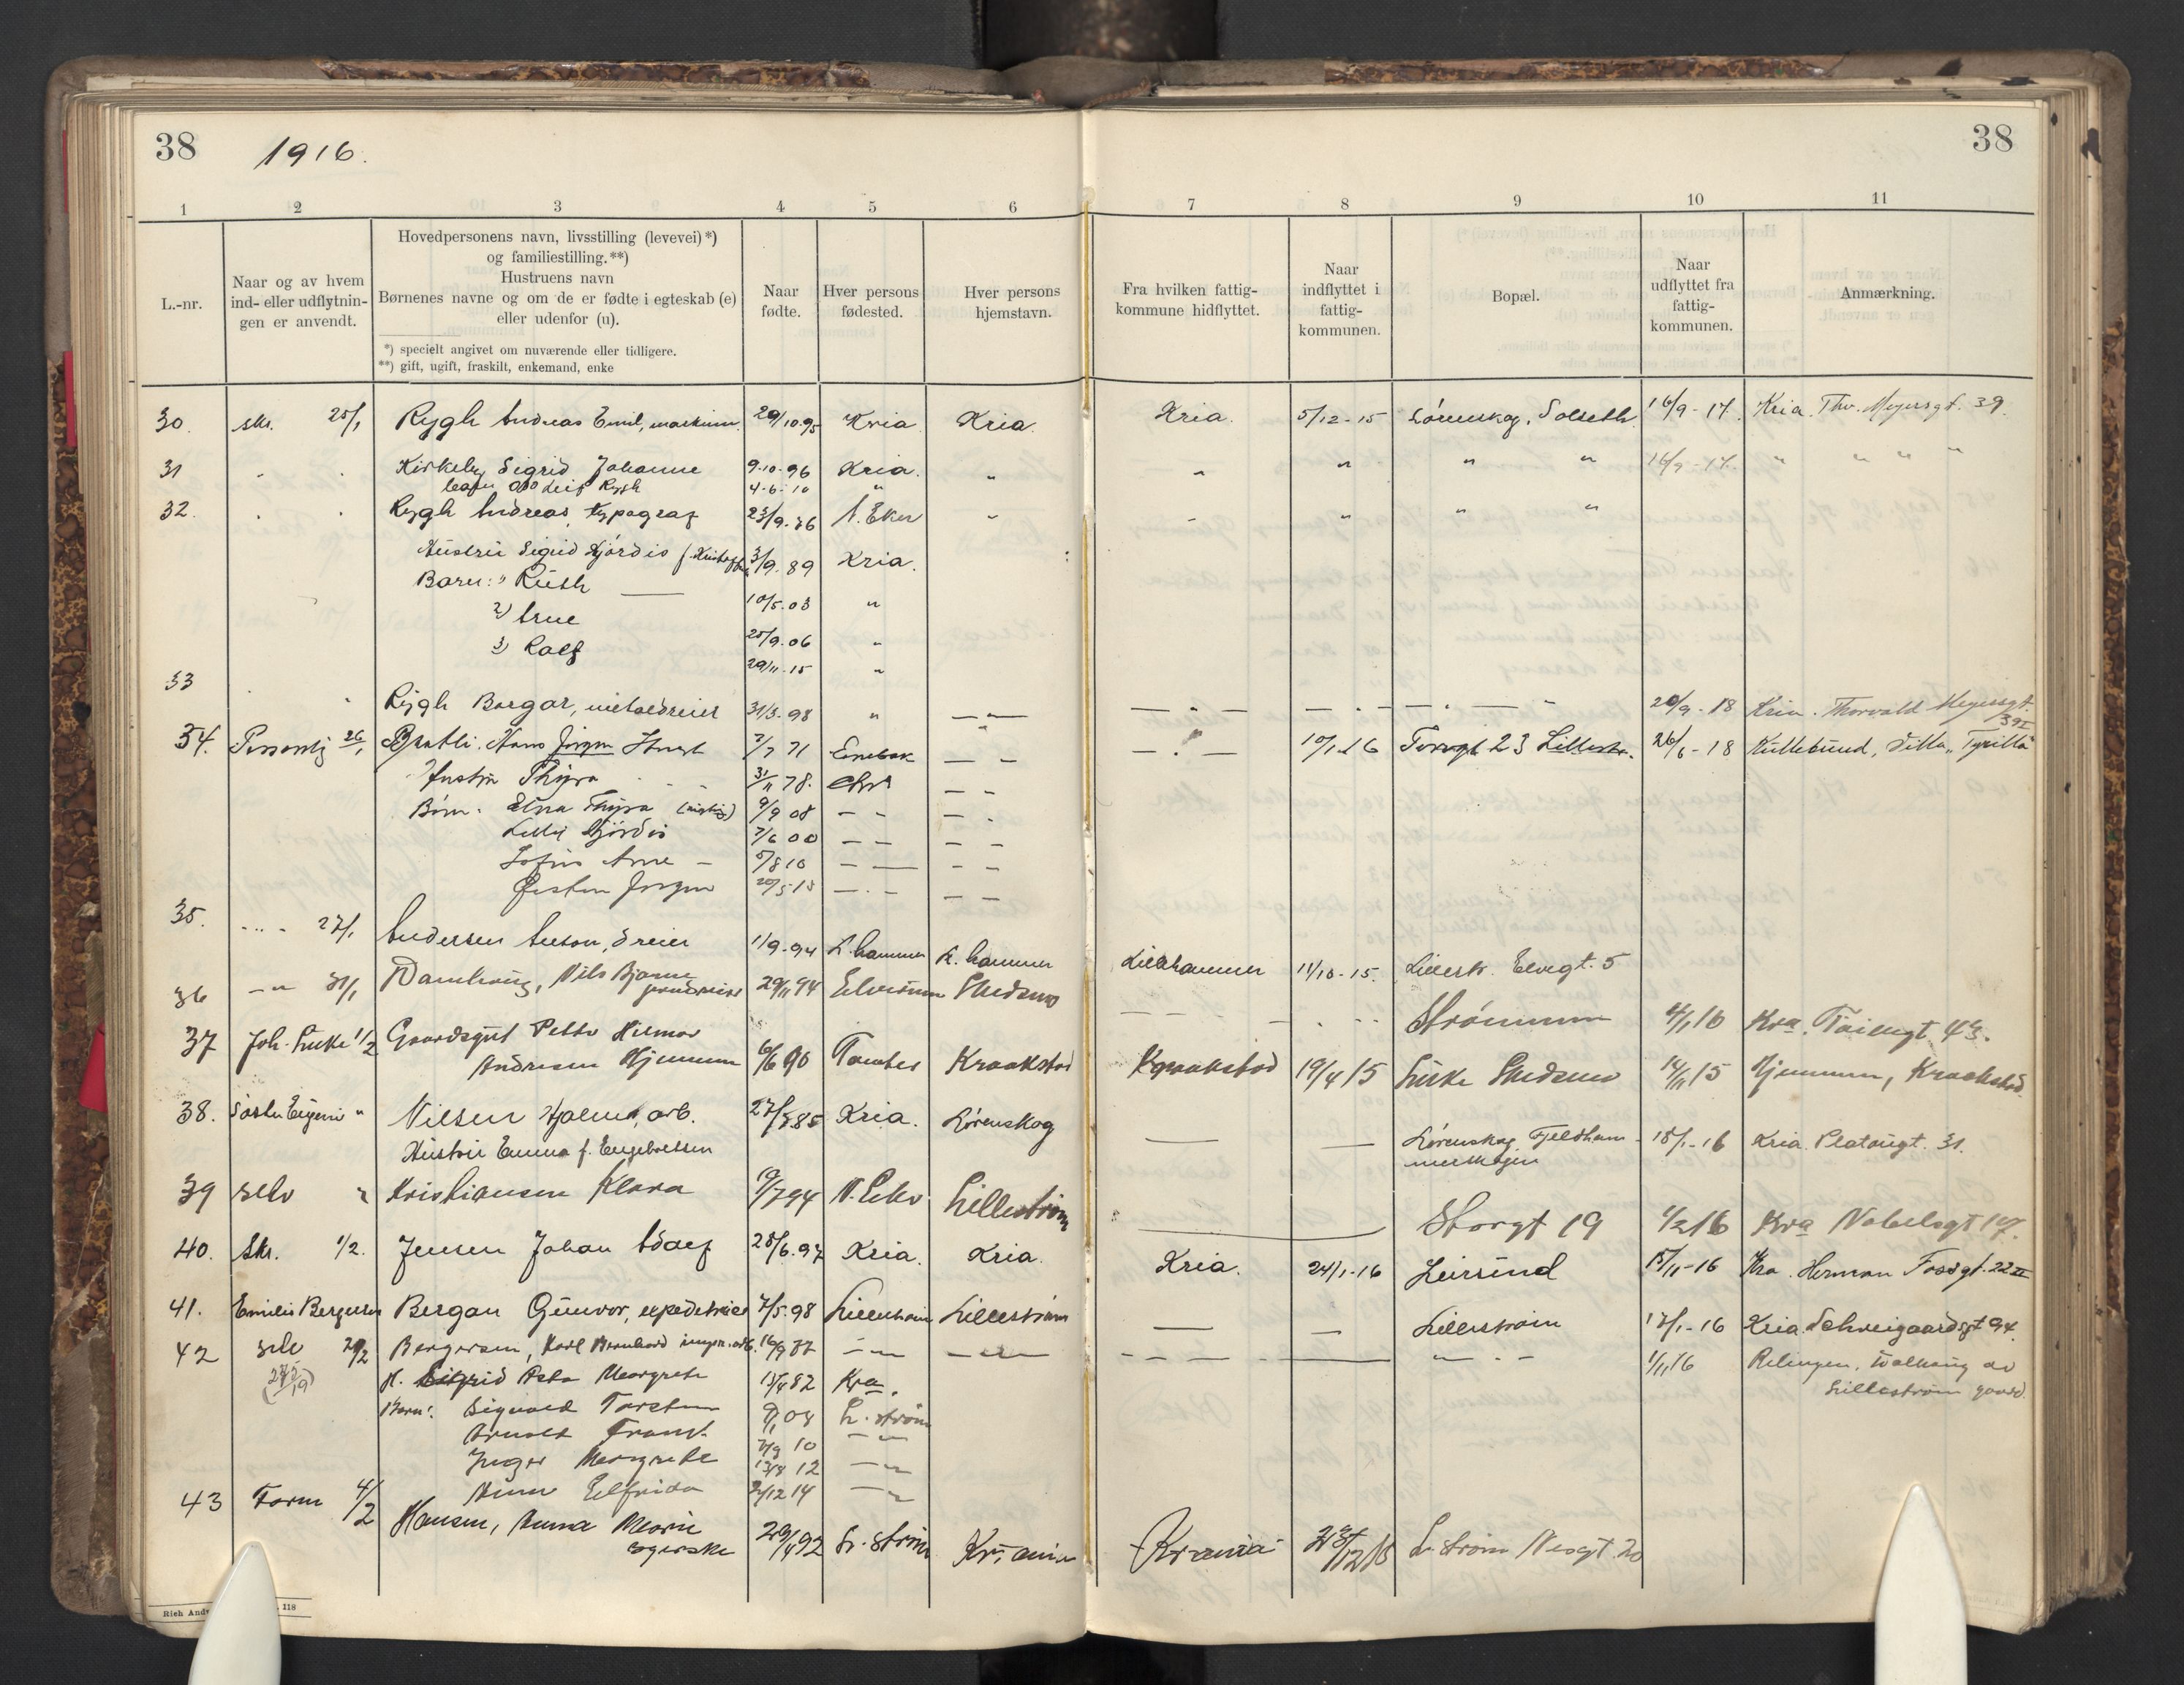 38
1916.
38
1 2 3 4 5 6 7 8 9 10 11
L.-nr.
Naar og av hvem
ind- eller udflytnin-
gen er anvendt.
Hovedpersonens navn, livsstilling (levevei)*)
og familiestilling.**)
Hustruens navn
Børnenes navne og om de er fødte i egteskab (e)
eller udenfor (u).
*) specielt angivet om nuværende eller tidligere.
**) gift, ugift, fraskilt, enkemand, enke
Naar
fødte.
Hver persons
fødested.
Hver persons
hjemstavn.
Fra hvilken fattig-
kommune hidflyttet.
Naar
indflyttet i
fattig-
kommunen.
Bopæl.
Naar
udflyttet fra
fattig-
kommunen.
Anmærkning.
30. skr. 25/1 Rygh Andreas Emil, maskinm. 29/10.95 Kria Kria. Kria. 5/12-15 Lørenskog, Solseth 16/9-17. Kria. Thv. Meyersgt. 39
31 Kirkeby Sigrid Johanne 9.10.96 Kria. " " " " " 16/9-17. " " " "
Leif Rygh 4-6-10 "
32. Rygh Andreas, typograf 23/9.76 N. Eker " " " " "
Hustru Sigrid Hjørdis f. 3/9.89 Kria.
Barn: 1) Ruth 10/5.03 "
2) Arne 25/9.06 "
3) Rolf 29/11-15 "
33 Rygh Borgar, metaldreier 31/3-98 " — " — 20/9-18 Kria. Thorvald Meyersgt.
39 II
34. Personlig 26/1 Bratli. Hans Jørgen 7/7 71 Enebak — — 10/1-16 Torvgt 23 Lillestr. 26/6-18 Kullebund, Villa "Tyrilla"
Hustru Thyra 31/11 78. Chr
Børn. Edna Thyra 9/9 08 — -
Lilly Hjørdis 7/6 00 — —
Arne — 5/8 10 — —
Øisten Jørgen 20/5-13 — . —
35. 27/1 Andersen Anton, dreier 1/9-94 L.hammer L.hammer Lillehammer 11/10-15. Lillestr. Elvegt. 5
36 — " 31/1 Damhaug, Nils Bjarne 29/11 94 Elverum Skedsmo
Strømmen 4/1 16 Kra. 43.
37 Joh. Huke 1/2 Gaardsgut Petter Hilmar
Andresen Hjemmen 6/6 90 Tomter Kraakstad Kraakstad 19/4 15 Huke Skedsmo 14/11 15 Hjemmen, Kraakstad
38. Søster Eugenie " Nilsen Hjalmar, arb. 27/3.85 Kria. Lørenskog
Hustru Emma f. Engebretsen
Lørenskog Fjeldham-
merskogen 18/1-16 Kria. Platougt. 31.
39 selv " Kristiansen Klara 9/7 94 N. Eker Lillestrøm
Storgt 19 1/2 16 Kra Nobelsgt 17.
40. Skr. 1/2. Jensen Johan Adolf 28/6.97 Kria. Kria. Kria. 24/1-16 Leirsund 15/11-16 Kra. Herman Fossgt. 22 II
41. Emilie Bergersen Bergan Gunvor, expeditrice 7/5.98 Lillestrøm Lillestrøm — — Lillestrøm 17/1-16 Kria. Schweigaardsgt 94.
42 selv 2/2 Bergersen, Karl Bernhard 16/9 77 — " — — " — 1/11 16 Relingen, Valhaug av
Lillestrøm gaard.
H. Asta Margrete 13/4 82 Kra.
Barn: Sigvald Torsten 08 L. strøm
Arnold Frank 10 — "
Inger Margrete 13/8 12 — "
Elfrida 2/12 14 — "
43 Form 4/2 Hansen, Anna Marie 29/4 92 L. Strøm Kr.ania Krania 23/12 15 L. strøm Nesgt. 20
syerske
Rich. And 118